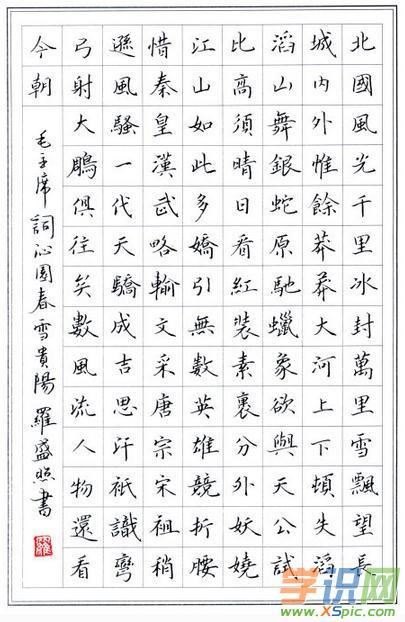 北國風光千里冰封萬里雪飄望長
城內外惟餘莽莽大河上下頓失滔
滔山舞銀蛇原馳蠟象欲與天公試
比高須晴日看紅裝素裹分外妖嬈
江山如此多嬌引無數英雄競折腰
惜秦皇漢武略輸文采唐宗宋祖稍
遜風騷一代天驕成吉思汗祇識彎
弓射大鵰俱往矣數風流人物還看
今朝
毛主席詞沁園春雪貴陽羅盛照書
羅
学识网
www.XSpic.com